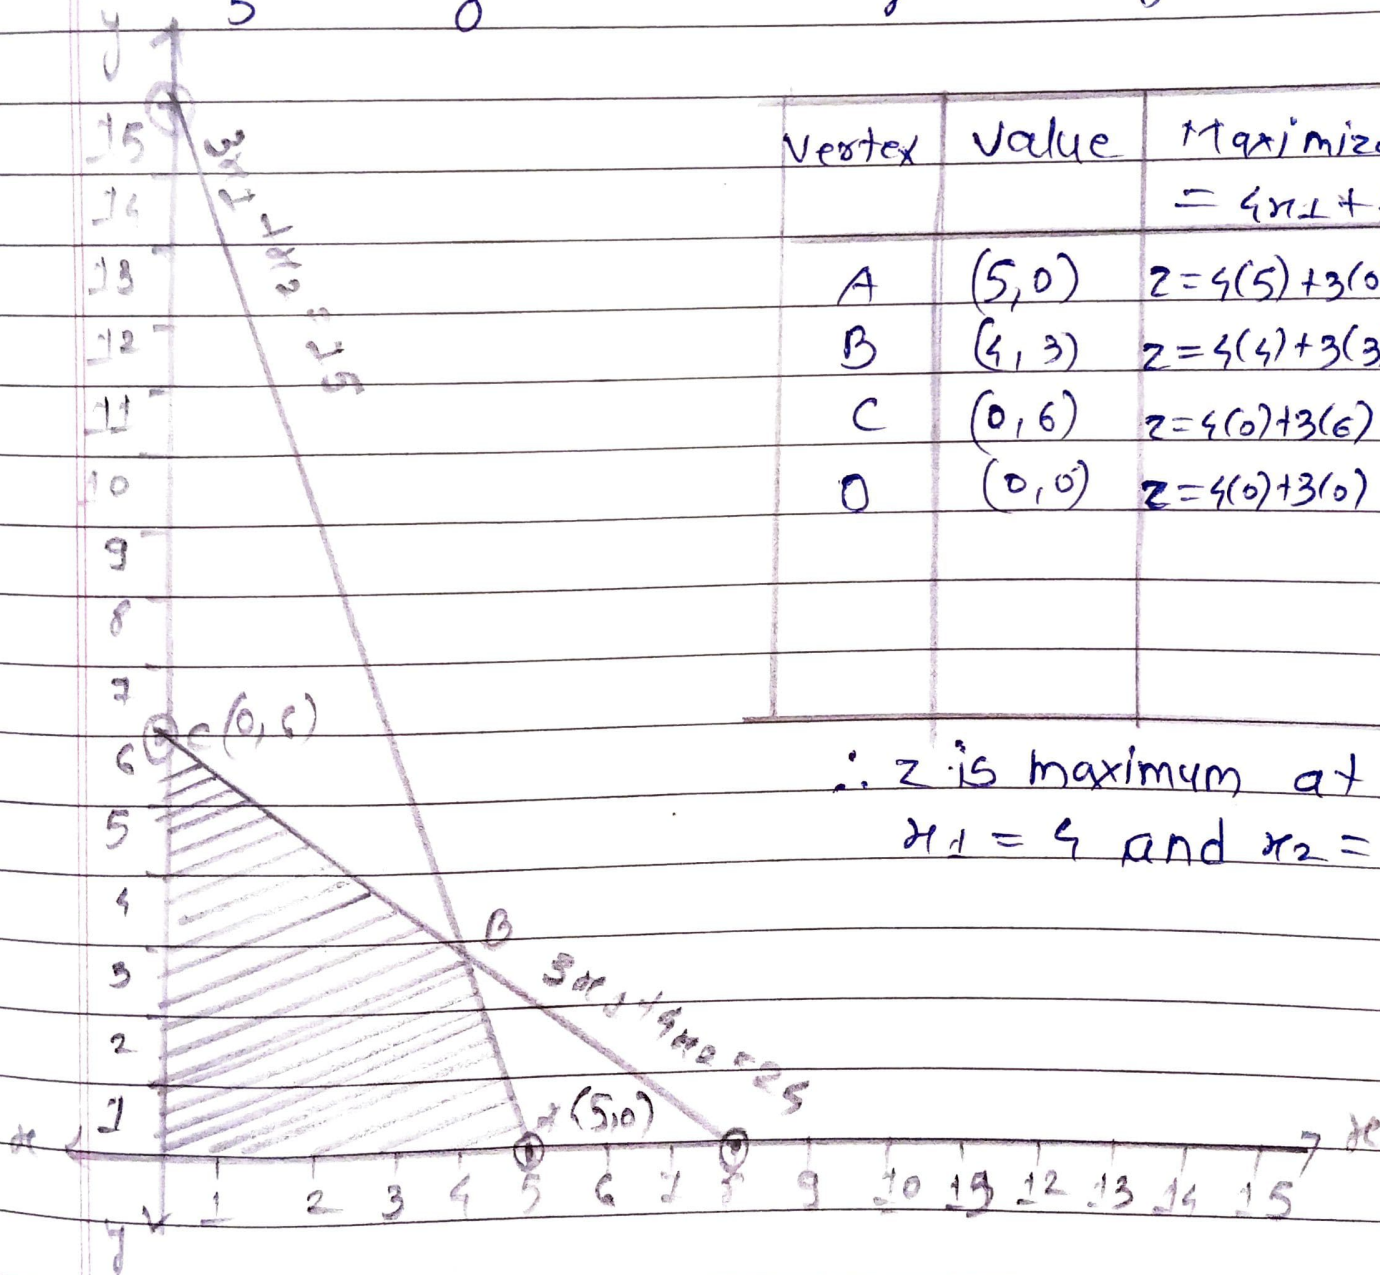 5 0
y
15
14
13
12
11
10
9
8
7
6
5
4
3
2
1
3x1 + 1x2 = 15
C(0,6)
B
3x1+4x2=25
A(5,0)
x x
1 2 3 4 5 6 7 8 9 10 11 12 13 14 15
y
Vertex Value Maximize
= 4x1+
A (5,0) z=4(5)+3(0
B (4,3) z=4(4)+3(3
C (0,6) z=4(0)+3(6)
O (0,0) z=4(0)+3(0)
∴ z is maximum at
x1 = 4 and x2 =